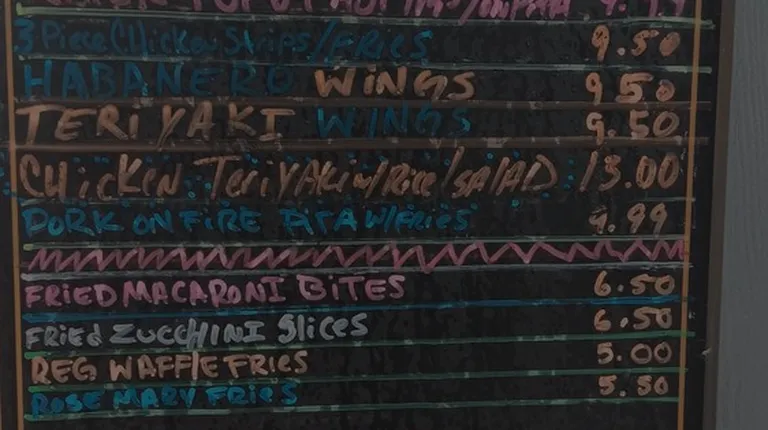 3 Piece Chicken Strips/FRies 9.50
HABANERO WINGS 9.50
TERIYAKI WINGS 9.50
CHicKEN TeriYAKi w/Rice/SALAD 13.00
PORK ON FIRE PITA W/FRies 9.99
FRIED MACARONI BITES 6.50
FRiEd ZUCCHINI SlicES 6.50
REG WAFFlE FRiES 5.00
ROSEMARY FRIES 5.50